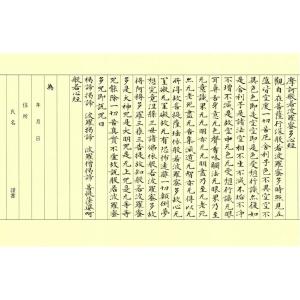 摩訶般若波羅蜜多心経
観自在菩薩行深般若波羅蜜多時照見五
蘊皆空度一切苦厄舎利子色不異空空不
異色色即是空空即是色受想行識亦復如
是舎利子是諸法空相不生不滅不垢不浄
不増不減是故空中无色无受想行識无眼
耳鼻舌身意无色聲香味觸法无眼界乃至
无意識界无无明亦无无明盡乃至无老死
亦无老死盡无苦集滅道无智亦无得以无
所得故菩提薩埵依般若波羅蜜多故心无
罣礙无罣礙故无有恐怖遠離一切顛倒夢
想究竟涅槃三世諸佛依般若波羅蜜多故
得阿耨多羅三藐三菩提故知般若波羅蜜
多是大神咒是大明咒是无上咒是无等等
咒能除一切苦真實不虚故説般若波羅蜜
多咒即説咒曰
揭諦揭諦 波羅揭諦 波羅僧揭諦 菩提薩婆訶
般若心経
為
年 月 日
住所
氏名 謹書